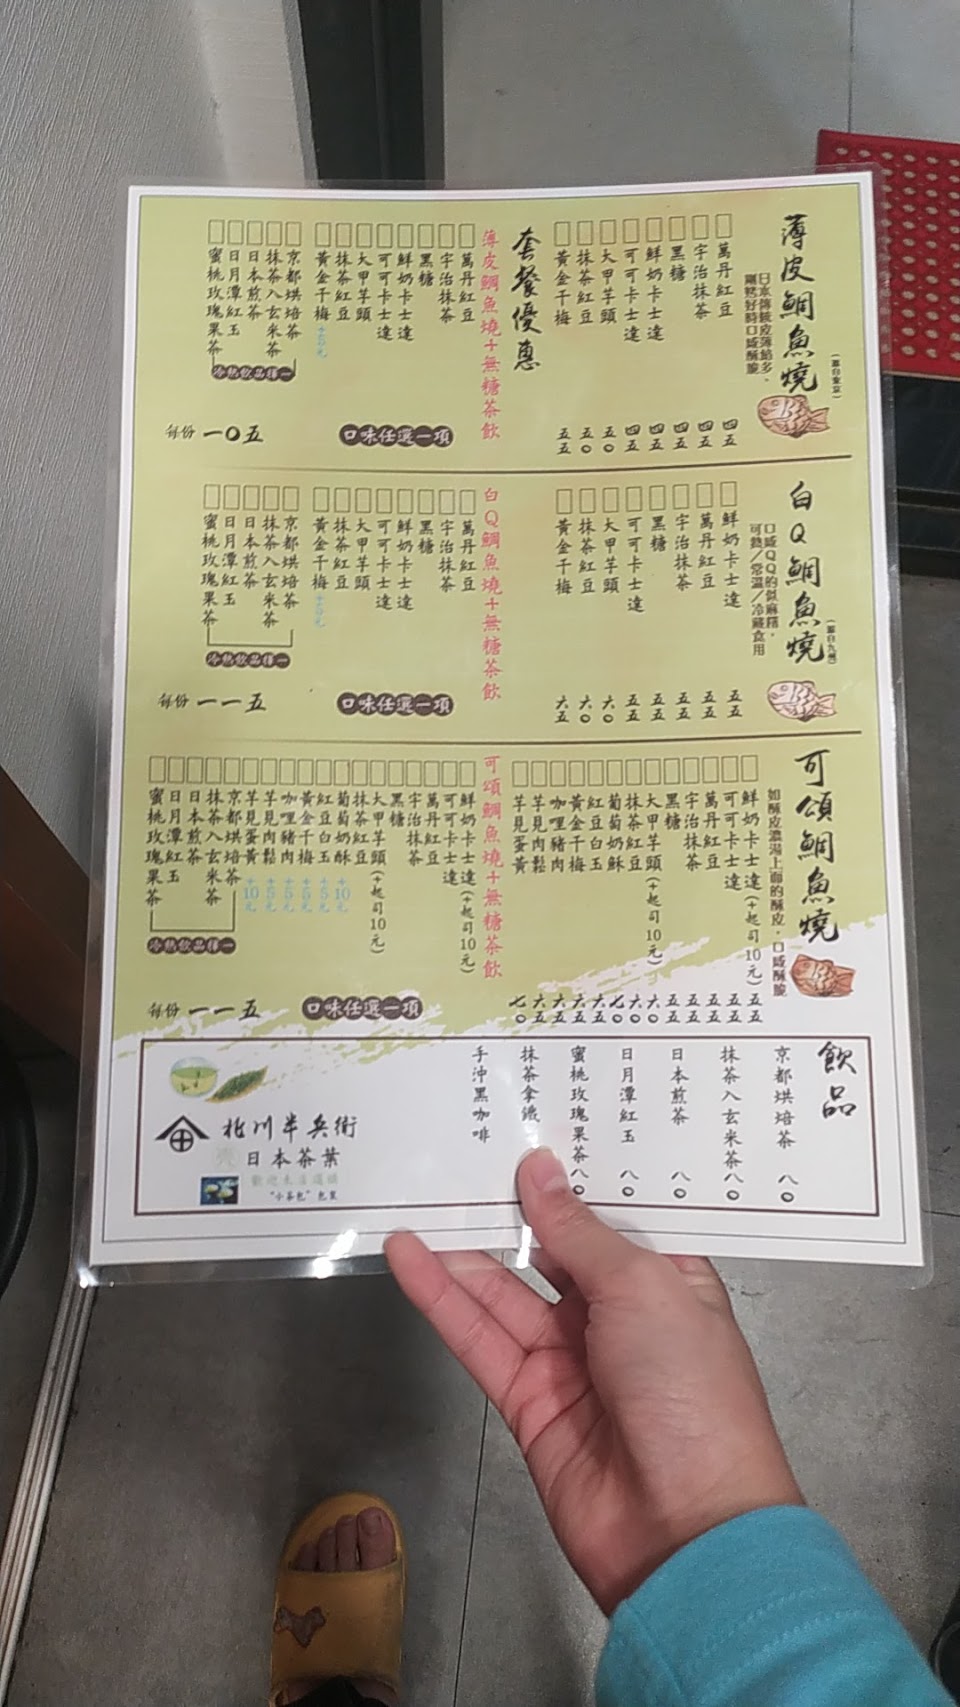 薄皮鯛魚燒
(源自東京)
日本傳統皮薄餡多，
剛烤好時口感酥脆
萬丹紅豆 四五
宇治抹茶 四五
黑糖 四五
鮮奶卡士達 四五
可可卡士達 四五
大甲芋頭 五〇
抹茶紅豆 五〇
黃金干梅 五五
套餐優惠
薄皮鯛魚燒＋無糖茶飲
萬丹紅豆
宇治抹茶
黑糖
鮮奶卡士達
可可卡士達
大甲芋頭
抹茶紅豆
黃金干梅 +5元
京都烘焙茶
抹茶入玄米茶
日本煎茶
日月潭紅玉
蜜桃玫瑰果茶
冷熱飲品擇一
口味任選一項
每份 一〇五
白Q鯛魚燒
(源自九州)
口感QQ的似麻糬，
可熱／常溫／冷藏食用
鮮奶卡士達 五五
萬丹紅豆 五五
宇治抹茶 五五
黑糖 五五
可可卡士達 五五
大甲芋頭 六〇
抹茶紅豆 六〇
黃金干梅 六五
白Q鯛魚燒＋無糖茶飲
萬丹紅豆
宇治抹茶
黑糖
鮮奶卡士達
可可卡士達
大甲芋頭
抹茶紅豆
黃金干梅 +5元
京都烘焙茶
抹茶入玄米茶
日本煎茶
日月潭紅玉
蜜桃玫瑰果茶
冷熱飲品擇一
口味任選一項
每份 一一五
可頌鯛魚燒
如酥皮濃湯上面的酥皮，口感酥脆
鮮奶卡士達(+起司10元) 五五
可可卡士達 五五
萬丹紅豆 五五
宇治抹茶 五五
黑糖 五五
大甲芋頭(+起司10元) 六〇
抹茶紅豆 六〇
葡萄奶酥 七〇
紅豆白玉 六五
黃金干梅 六五
咖哩豬肉 六五
芋見肉鬆 六五
芋見蛋黃 七〇
可頌鯛魚燒＋無糖茶飲
鮮奶卡士達(+起司10元)
可可卡士達
萬丹紅豆
宇治抹茶
黑糖
大甲芋頭(+起司10元)
抹茶紅豆
葡萄奶酥 +10元
紅豆白玉 +5元
黃金干梅 +5元
咖哩豬肉 +5元
芋見肉鬆 +5元
芋見蛋黃 +10元
京都烘焙茶
抹茶入玄米茶
日本煎茶
日月潭紅玉
蜜桃玫瑰果茶
冷熱飲品擇一
口味任選一項
每份 一一五
飲品
京都烘焙茶 八〇
抹茶入玄米茶 八〇
日本煎茶 八〇
日月潭紅玉 八〇
蜜桃玫瑰果茶 八〇
抹茶拿鐵
手沖黑咖啡
北川半兵衛
日本茶葉
歡迎來店選購
"小茶包"包裝